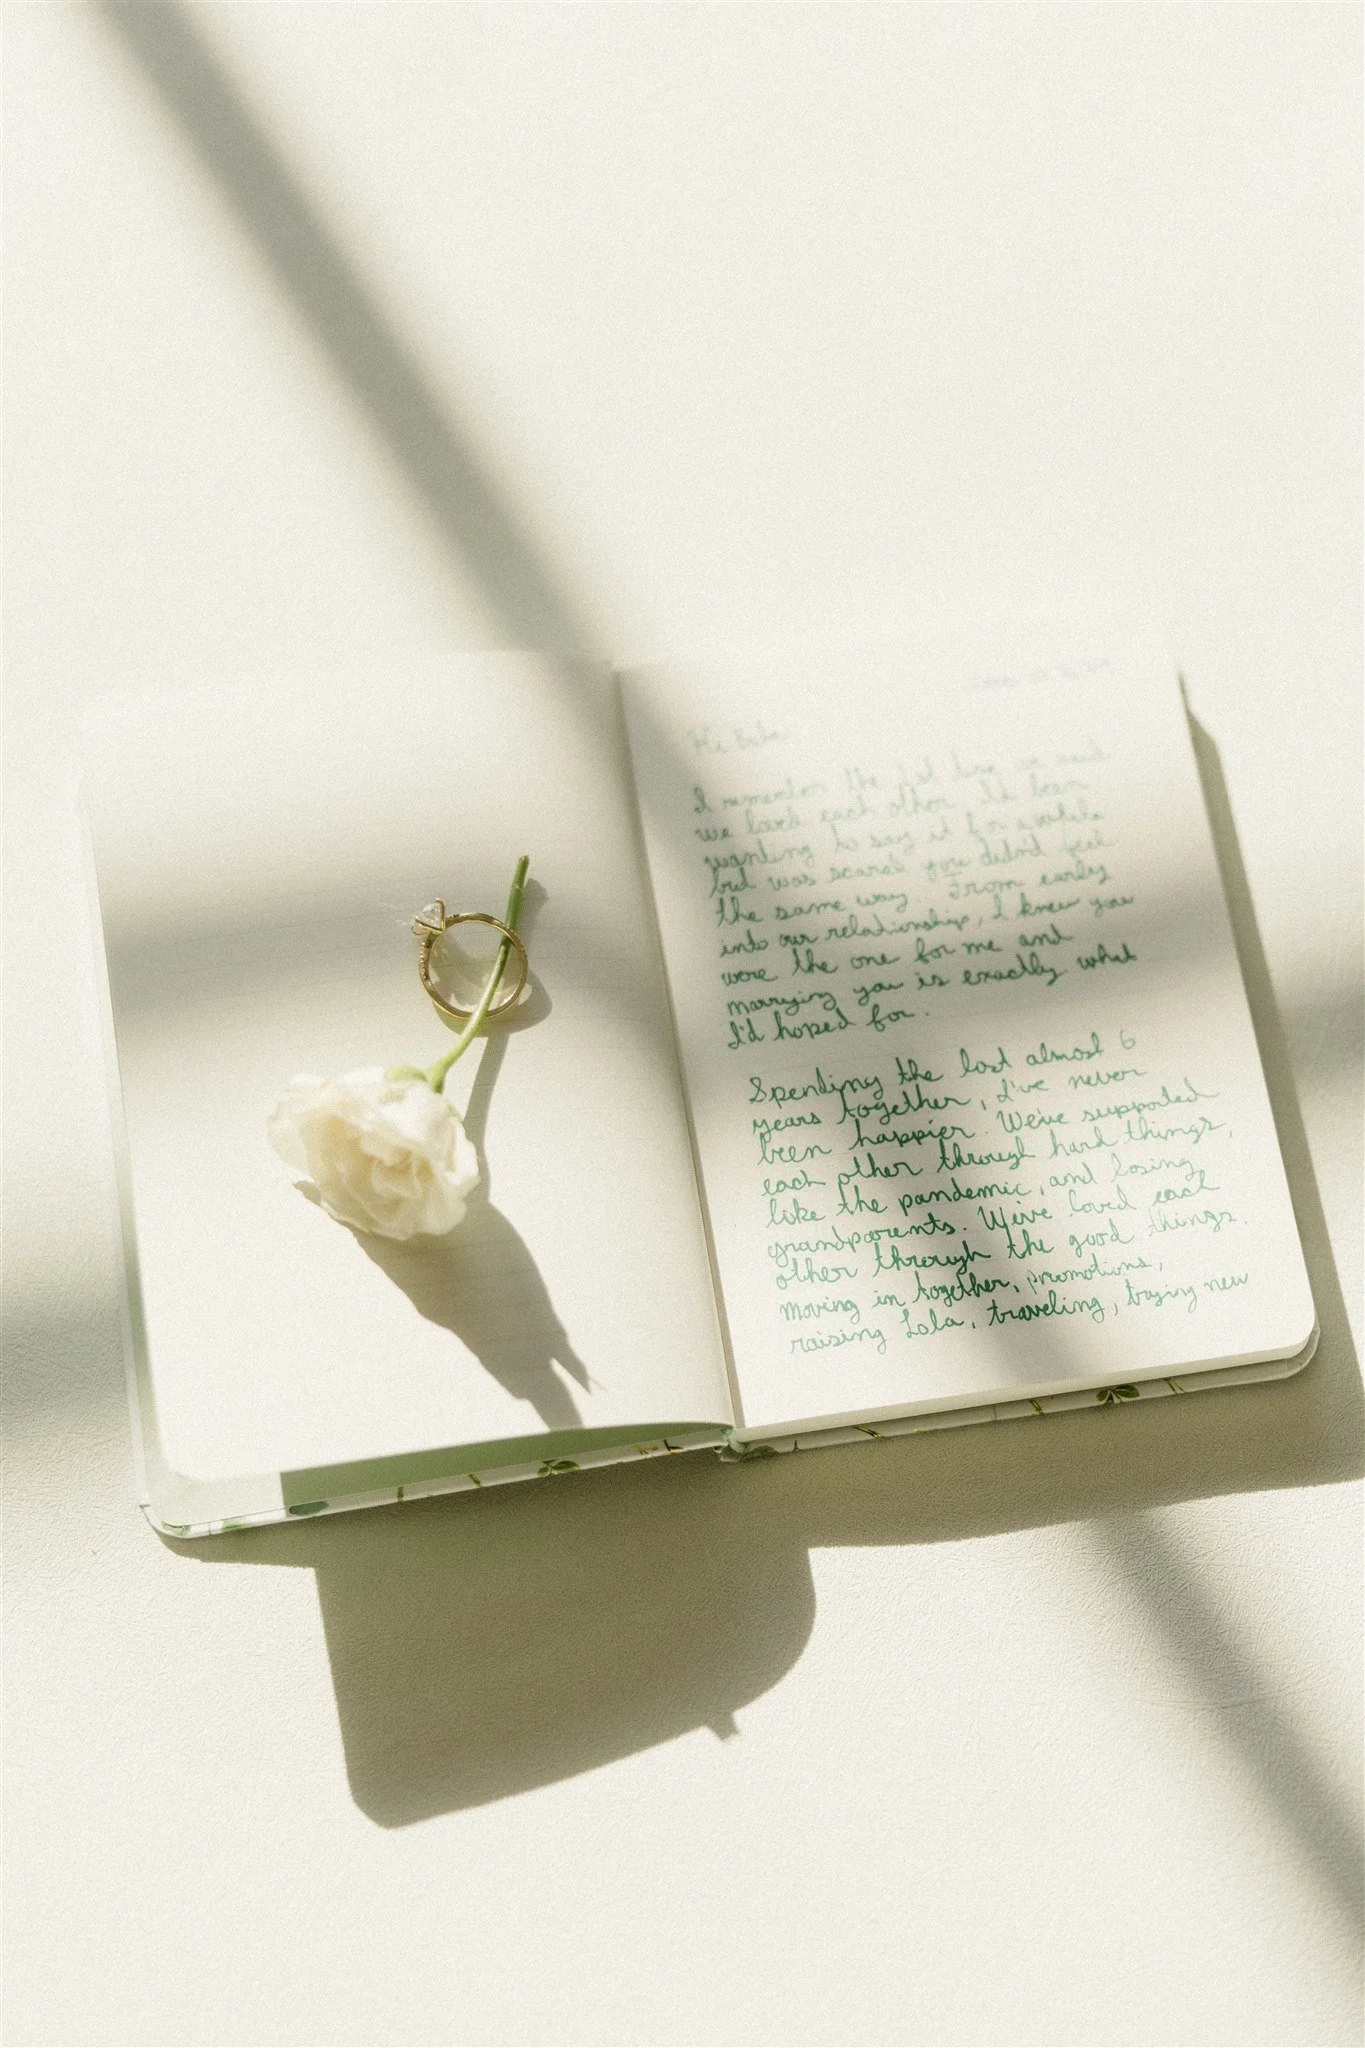 Hi Babe,
I remember the 1st time we said
we loved each other. I'd been
wanting to say it for awhile
but was scared you didn't feel
the same way. From early
into our relationship, I knew you
were the one for me and
marrying you is exactly what
I'd hoped for.
Spending the last almost 6
years together, I've never
been happier. We've supported
each other through hard things,
like the pandemic, and losing
grandparents. We've loved each
other through the good things.
moving in together, promotions,
raising Lola, traveling, trying new